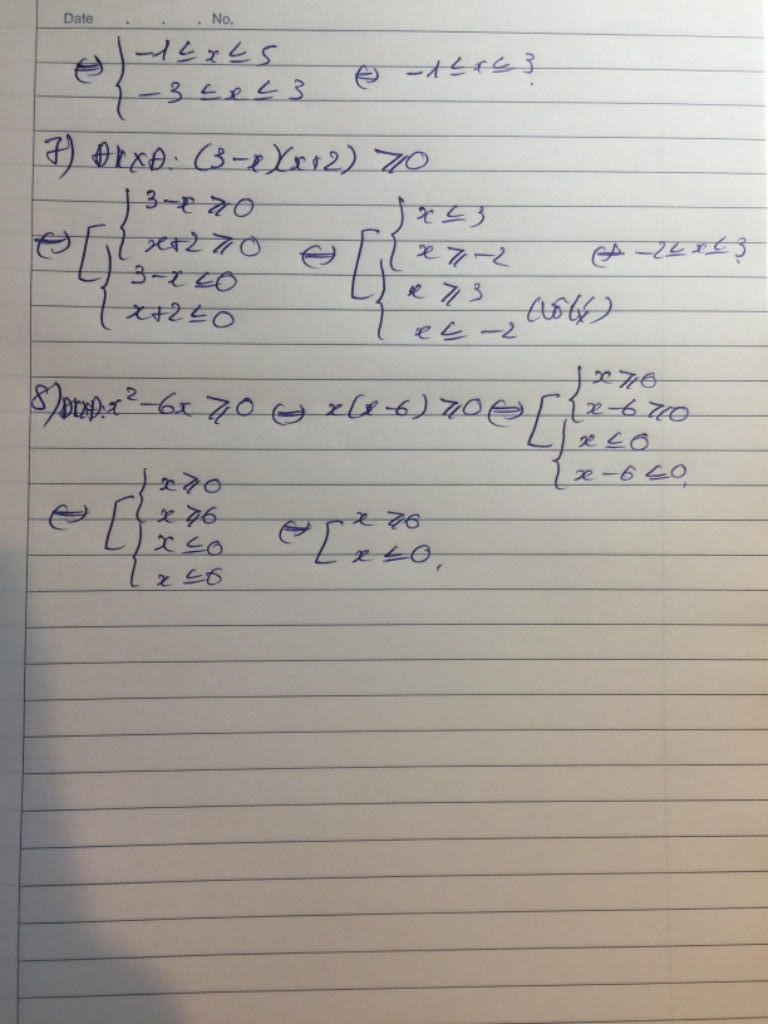 Date . . . No.
⇔ { -1 ≤ x ≤ 5
{ -3 ≤ x ≤ 3 ⇔ -1 ≤ x ≤ 3.
7) ĐKXĐ: (3-x)(x+2) ≥ 0
⇔ [ { 3-x ≥ 0
{ x+2 ≥ 0
{ 3-x ≤ 0
{ x+2 ≤ 0
⇔ [ { x ≤ 3
{ x ≥ -2
{ x ≥ 3
{ x ≤ -2 (vô lý)
⇔ -2 ≤ x ≤ 3.
8) ĐKXĐ: x² - 6x ≥ 0 ⇔ x(x-6) ≥ 0 ⇔ [ { x ≥ 0
{ x-6 ≥ 0
{ x ≤ 0
{ x-6 ≤ 0.
⇔ [ { x ≥ 0
{ x ≥ 6
{ x ≤ 0
{ x ≤ 6
⇔ [ x ≥ 6
x ≤ 0.